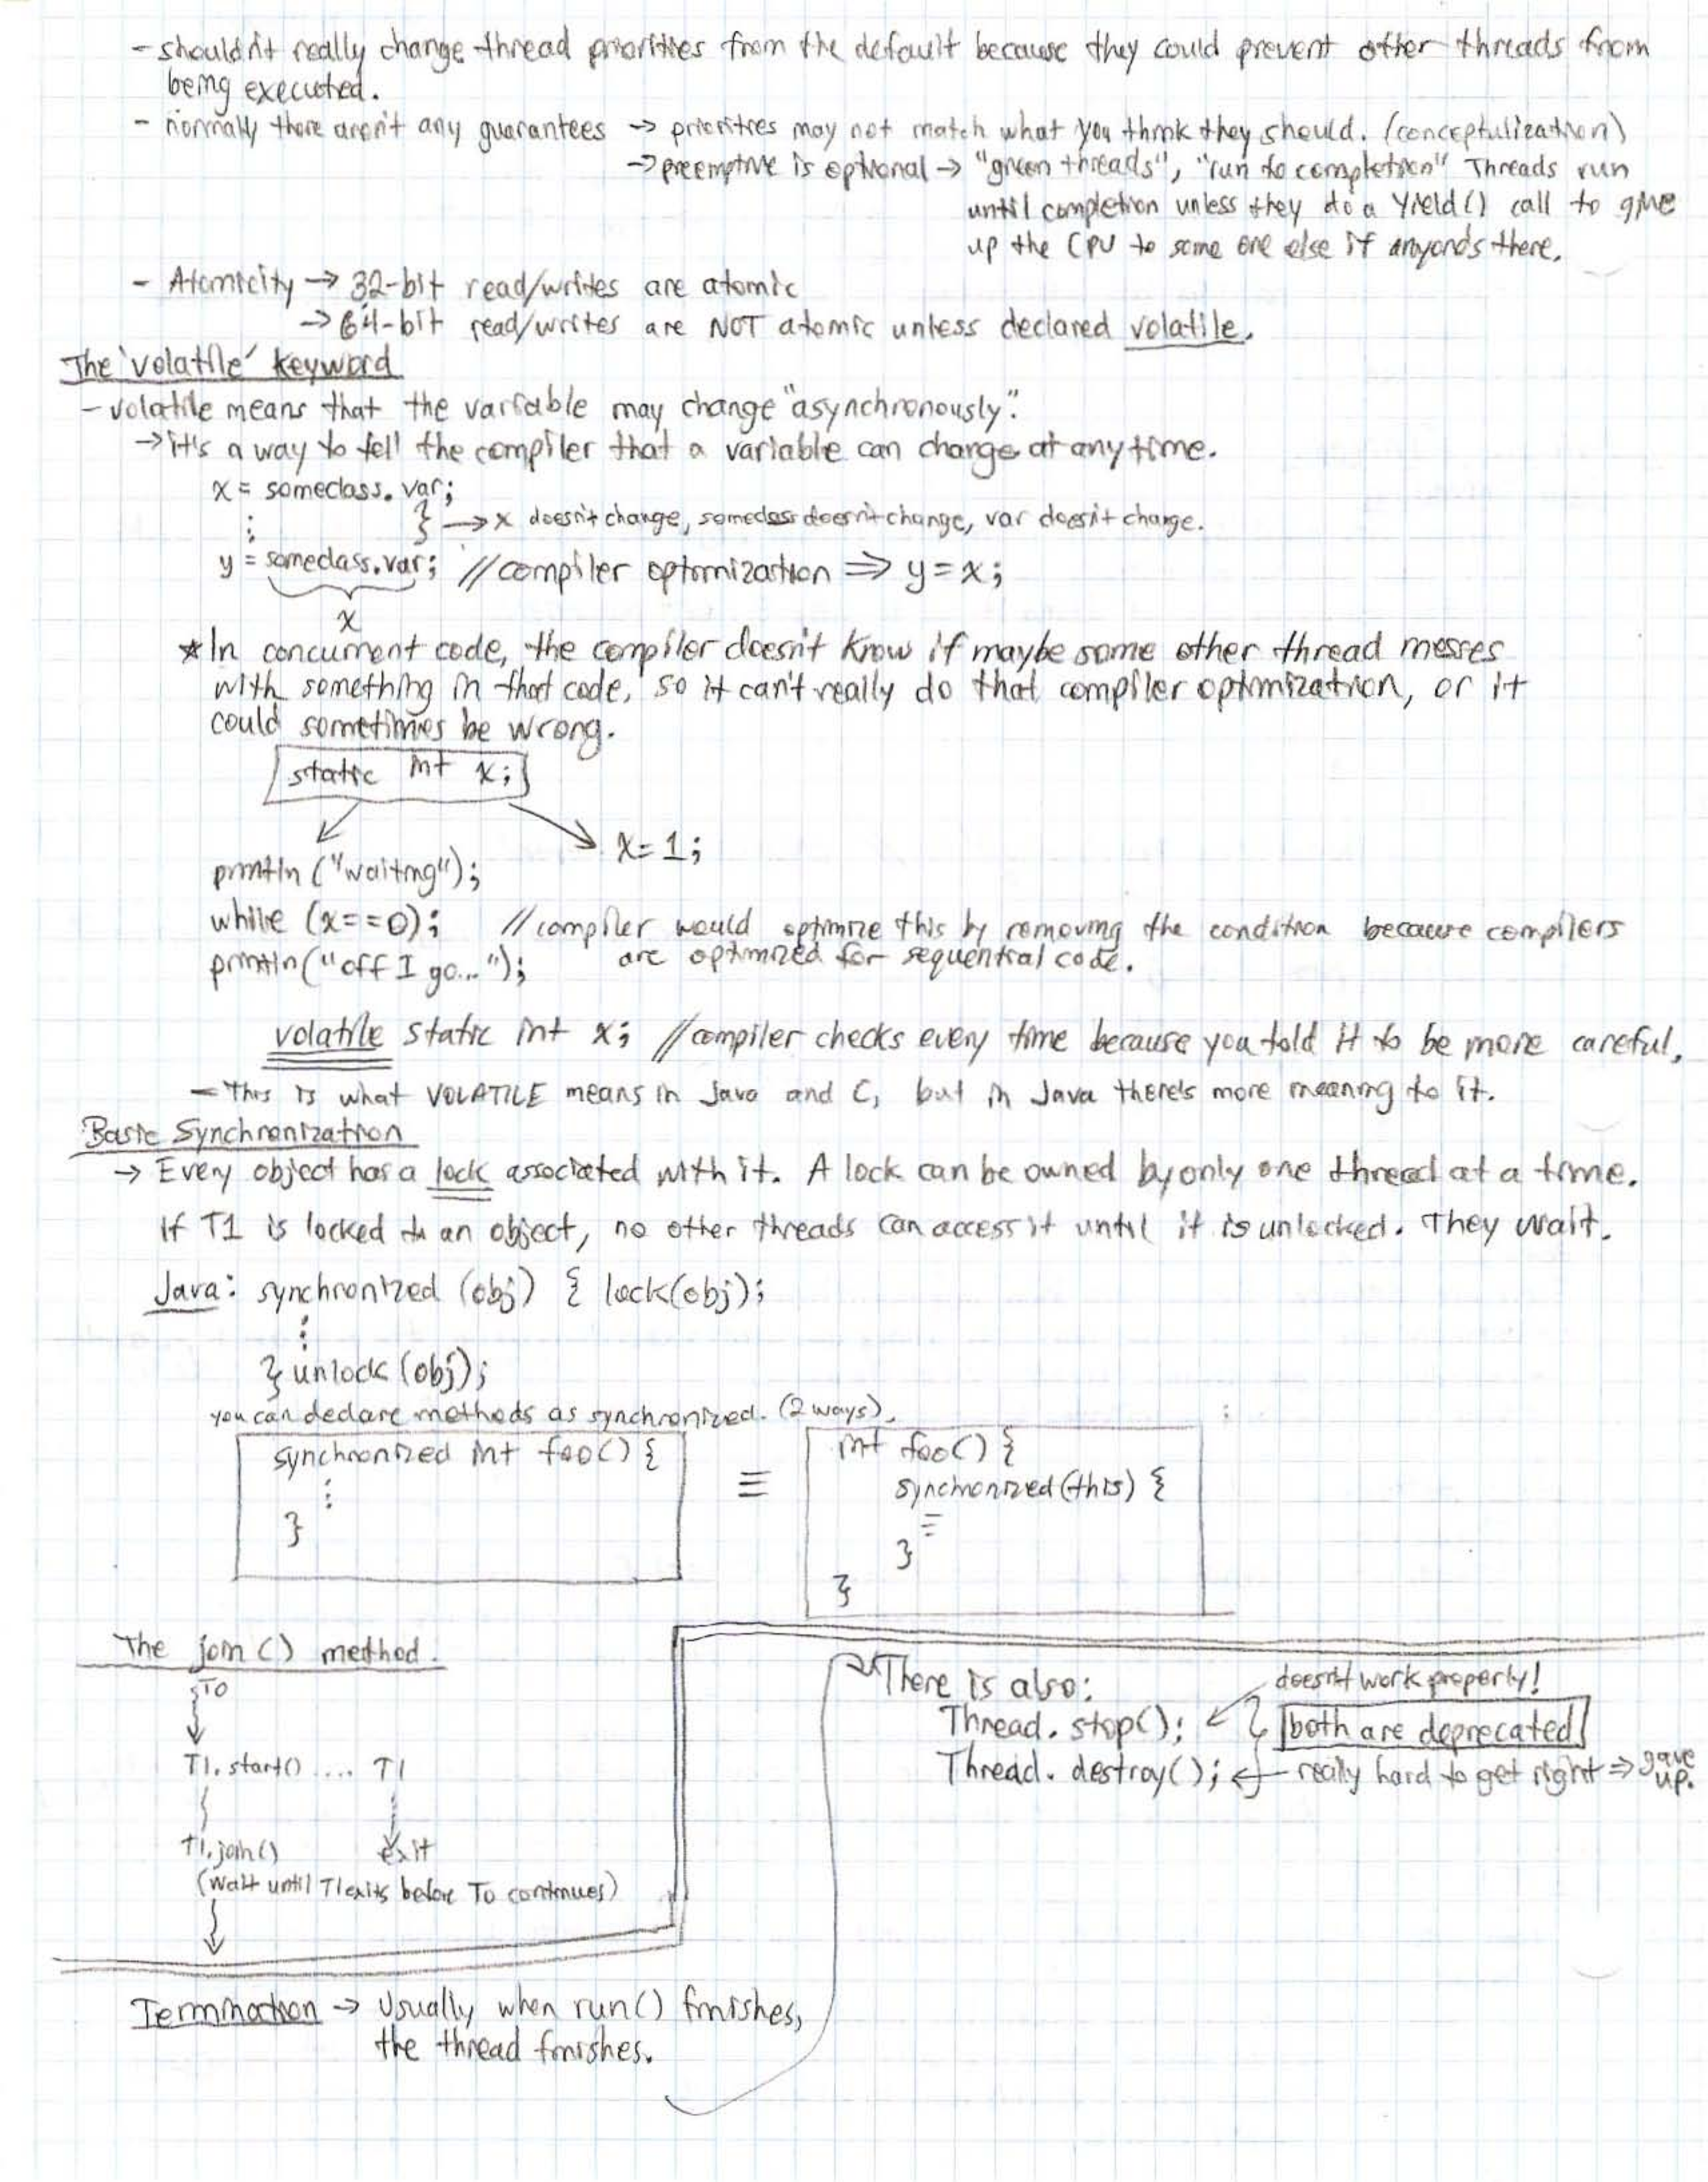 - shouldn't really change thread priorities from the default because they could prevent other threads from
being executed.
- normally there aren't any guarantees → priorities may not match what you think they should. (conceptulization)
→ preemptive is optional → "green threads", "run to completion" Threads run
until completion unless they do a Yield() call to give
up the CPU to some one else if anyond's there.
- Atomicity → 32-bit read/writes are atomic
→ 64-bit read/writes are NOT atomic unless declared volatile.
The 'volatile' keyword
- volatile means that the variable may change "asynchronously".
→ it's a way to tell the compiler that a variable can change at any time.
x = someclass.var;
⋮ } → x doesn't change, someclass doesn't change, var doesn't change.
y = someclass.var; //compiler optimization ⇒ y=x;
x
* In concurrent code, the compiler doesn't know if maybe some other thread messes
with something in that code, so it can't really do that compiler optimization, or it
could sometimes be wrong.
static int x;
x=1;
println("waiting");
while (x==0); //compiler would optimize this by removing the condition because compilers
are optimized for sequential code.
println("off I go...");
volatile static int x; //compiler checks every time because you told it to be more careful.
- This is what VOLATILE means in Java and C, but in Java there's more meaning to it.
Basic Synchronization
→ Every object has a lock associated with it. A lock can be owned by only one thread at a time.
if T1 is locked to an object, no other threads can access it until it is unlocked. They wait.
Java: synchronized (obj) { lock(obj);
⋮
} unlock(obj);
you can declare methods as synchronized. (2 ways).
synchronized int foo() {
⋮
}
≡
int foo() {
synchronized(this) {
}
}
The join() method.
T0
T1.start() .... T1
T1.join() exit
(wait until T1 exits before T0 continues)
Termination → Usually when run() finishes,
the thread finishes.
There is also:
doesn't work properly!
Thread.stop(); ← } both are deprecated
Thread.destroy(); ← really hard to get right ⇒ gave up.